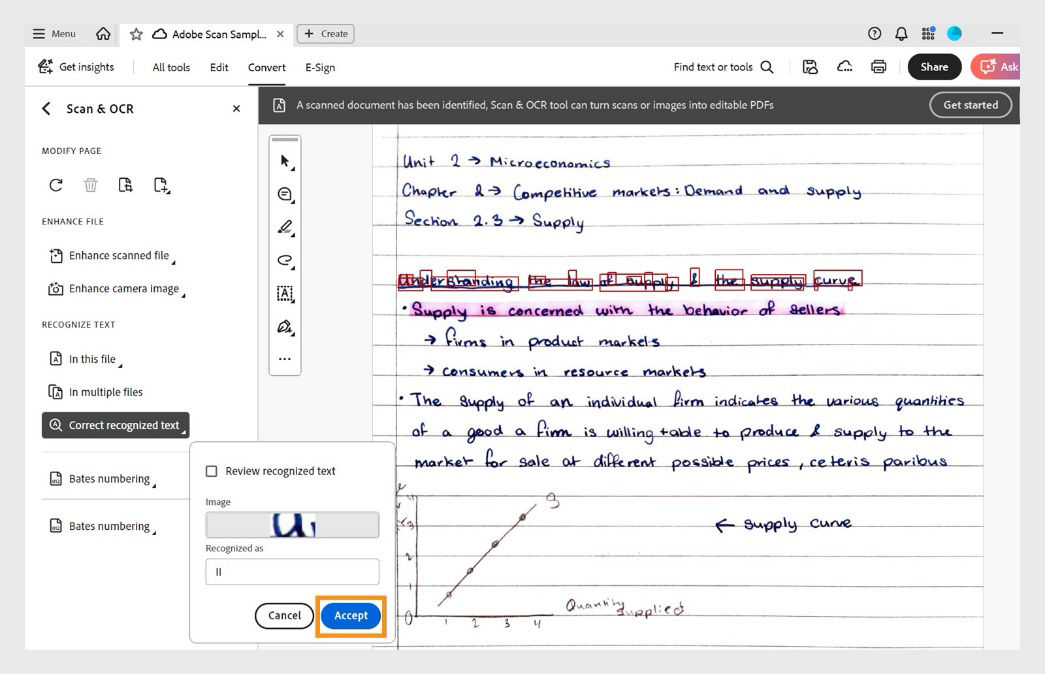 Menu Adobe Scan Sampl... Create
Get insights All tools Edit Convert E-Sign Find text or tools Share Ask
Scan & OCR
A scanned document has been identified, Scan & OCR tool can turn scans or images into editable PDFs Get started
MODIFY PAGE
ENHANCE FILE
Enhance scanned file
Enhance camera image
RECOGNIZE TEXT
In this file
In multiple files
Correct recognized text
Bates numbering
Bates numbering
Review recognized text
Image
u
Recognized as
II
Cancel Accept
Unit 2 → Microeconomics
Chapter 2 → Competitive markets: Demand and supply
Section 2.3 → Supply
Understanding the law of supply & the supply curve
• Supply is concerned with the behavior of sellers
→ firms in product markets
→ consumers in resource markets
• The supply of an individual firm indicates the various quantities
of a good a firm is willing + able to produce & supply to the
market for sale at different possible prices, ceteris paribus
S
4
3
← supply curve
2
1
0
1 2 3 4
Quantity supplied